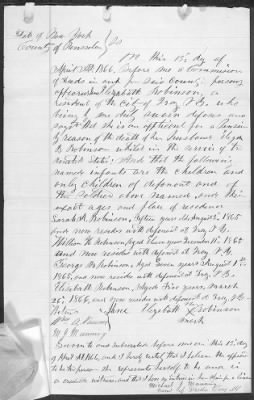 State of New York
County of Rensselaer } SS
On this 15 day of
April AD 1866, before me a Commissioner
of Deeds in and for said County, person
appeared Elizabeth Robinson, a
resident of the City of Troy N.Y. who
being by me duly sworn deposes and
says that she is an applicant for a pension
by reason of the death of her husband
Robinson whilst in the service of the
United States; And that the following
named infants are the children and
only children of deponent and of
the soldier above named and their
exact ages and place of residence
Sarah A. Robinson, years
and now resides with deponent at Troy N.Y.
William H. Robinson, aged
and now resides with deponent at Troy N.Y.
George Robinson, aged seven years August
1865, and now resides with deponent at Troy N.Y.
Elizabeth Robinson, aged five years March
26, 1866, and now resides with deponent at Troy N.Y.
Elizabeth Robinson
mark
Wm A.
Manning
Sworn to and subscribed before me on this 15 day
of April AD 1866, and I hereby certify that I believe the affiant
to be the person she represents herself to be and is
a credible witness, and that I have no interest in her claim for a Pension
Michael J. Manning
Com of Deeds Troy NY